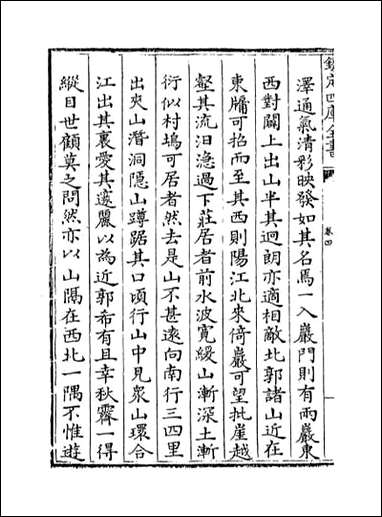 欽定四庫全書
卷四
澤通氣清彩映發如其名焉一入巖門則有兩巖東
西對闢上出山半其迥朗亦適相敵北郭諸山近在
東牖可招而至其西則陽江北來倚巖可望批崖越
壑其流汩㶁過下莊居者前水波寬緩山漸深土漸
衍似村塢可居者然去是山不甚遠向南行三四里
出夾山潛洞隱山蹲踞其口頃行山中見衆山環合
江出其裏愛其邃麗以為近郭希有且幸秋霽一得
縱目世顧莫之問然亦以山隅在西北一隅不惟遊